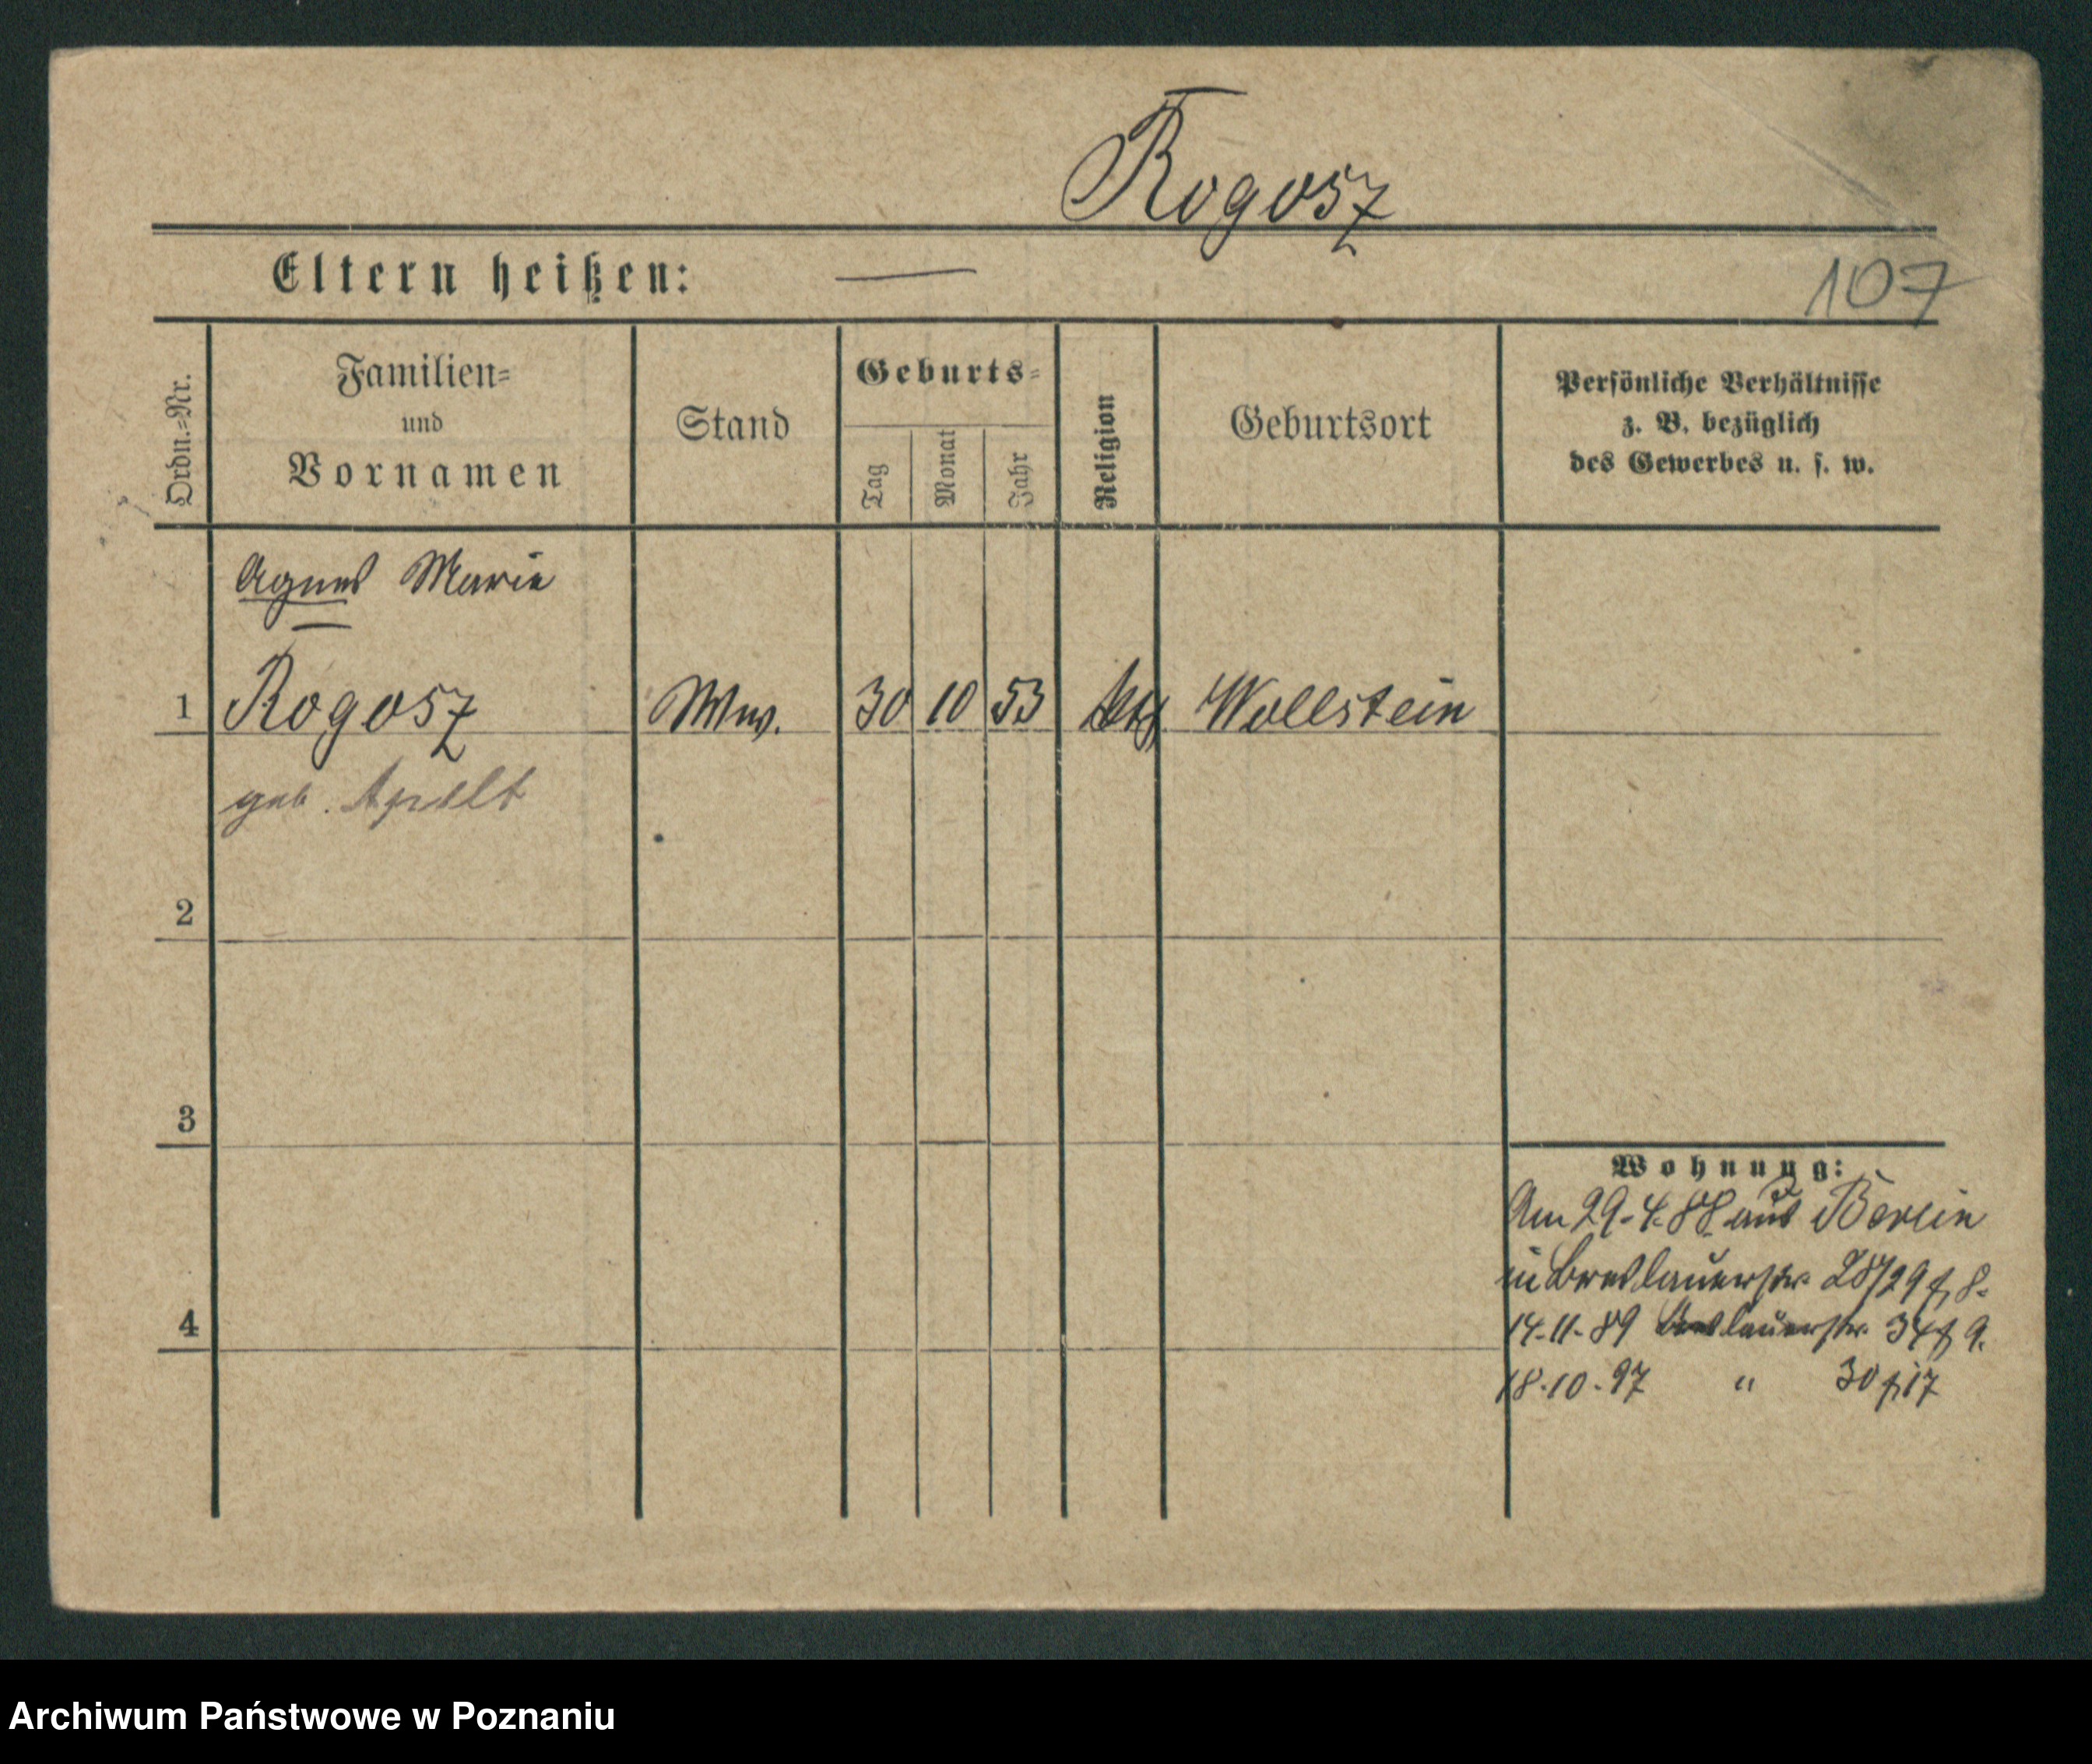 Rogosz
Eltern heißen: —
107
Ordn.=Nr.
Familien=
und
Vornamen
Stand
Geburts=
Tag
Monat
Jahr
Religion
Geburtsort
Persönliche Verhältnisse
z. B. bezüglich
des Gewerbes u. s. w.
Agnes Marie
1 Rogosz Ww. 30 10 53 kth Wollstein
geb. Apelt
2
3
Wohnung:
Am 29.4.88 aus Berlin
in Breslauerstr 28/29 f, 8.
4
14.11.89 Breslauerstr. 34 f, 9.
18.10.97 " 30 f, 17
Archiwum Państwowe w Poznaniu